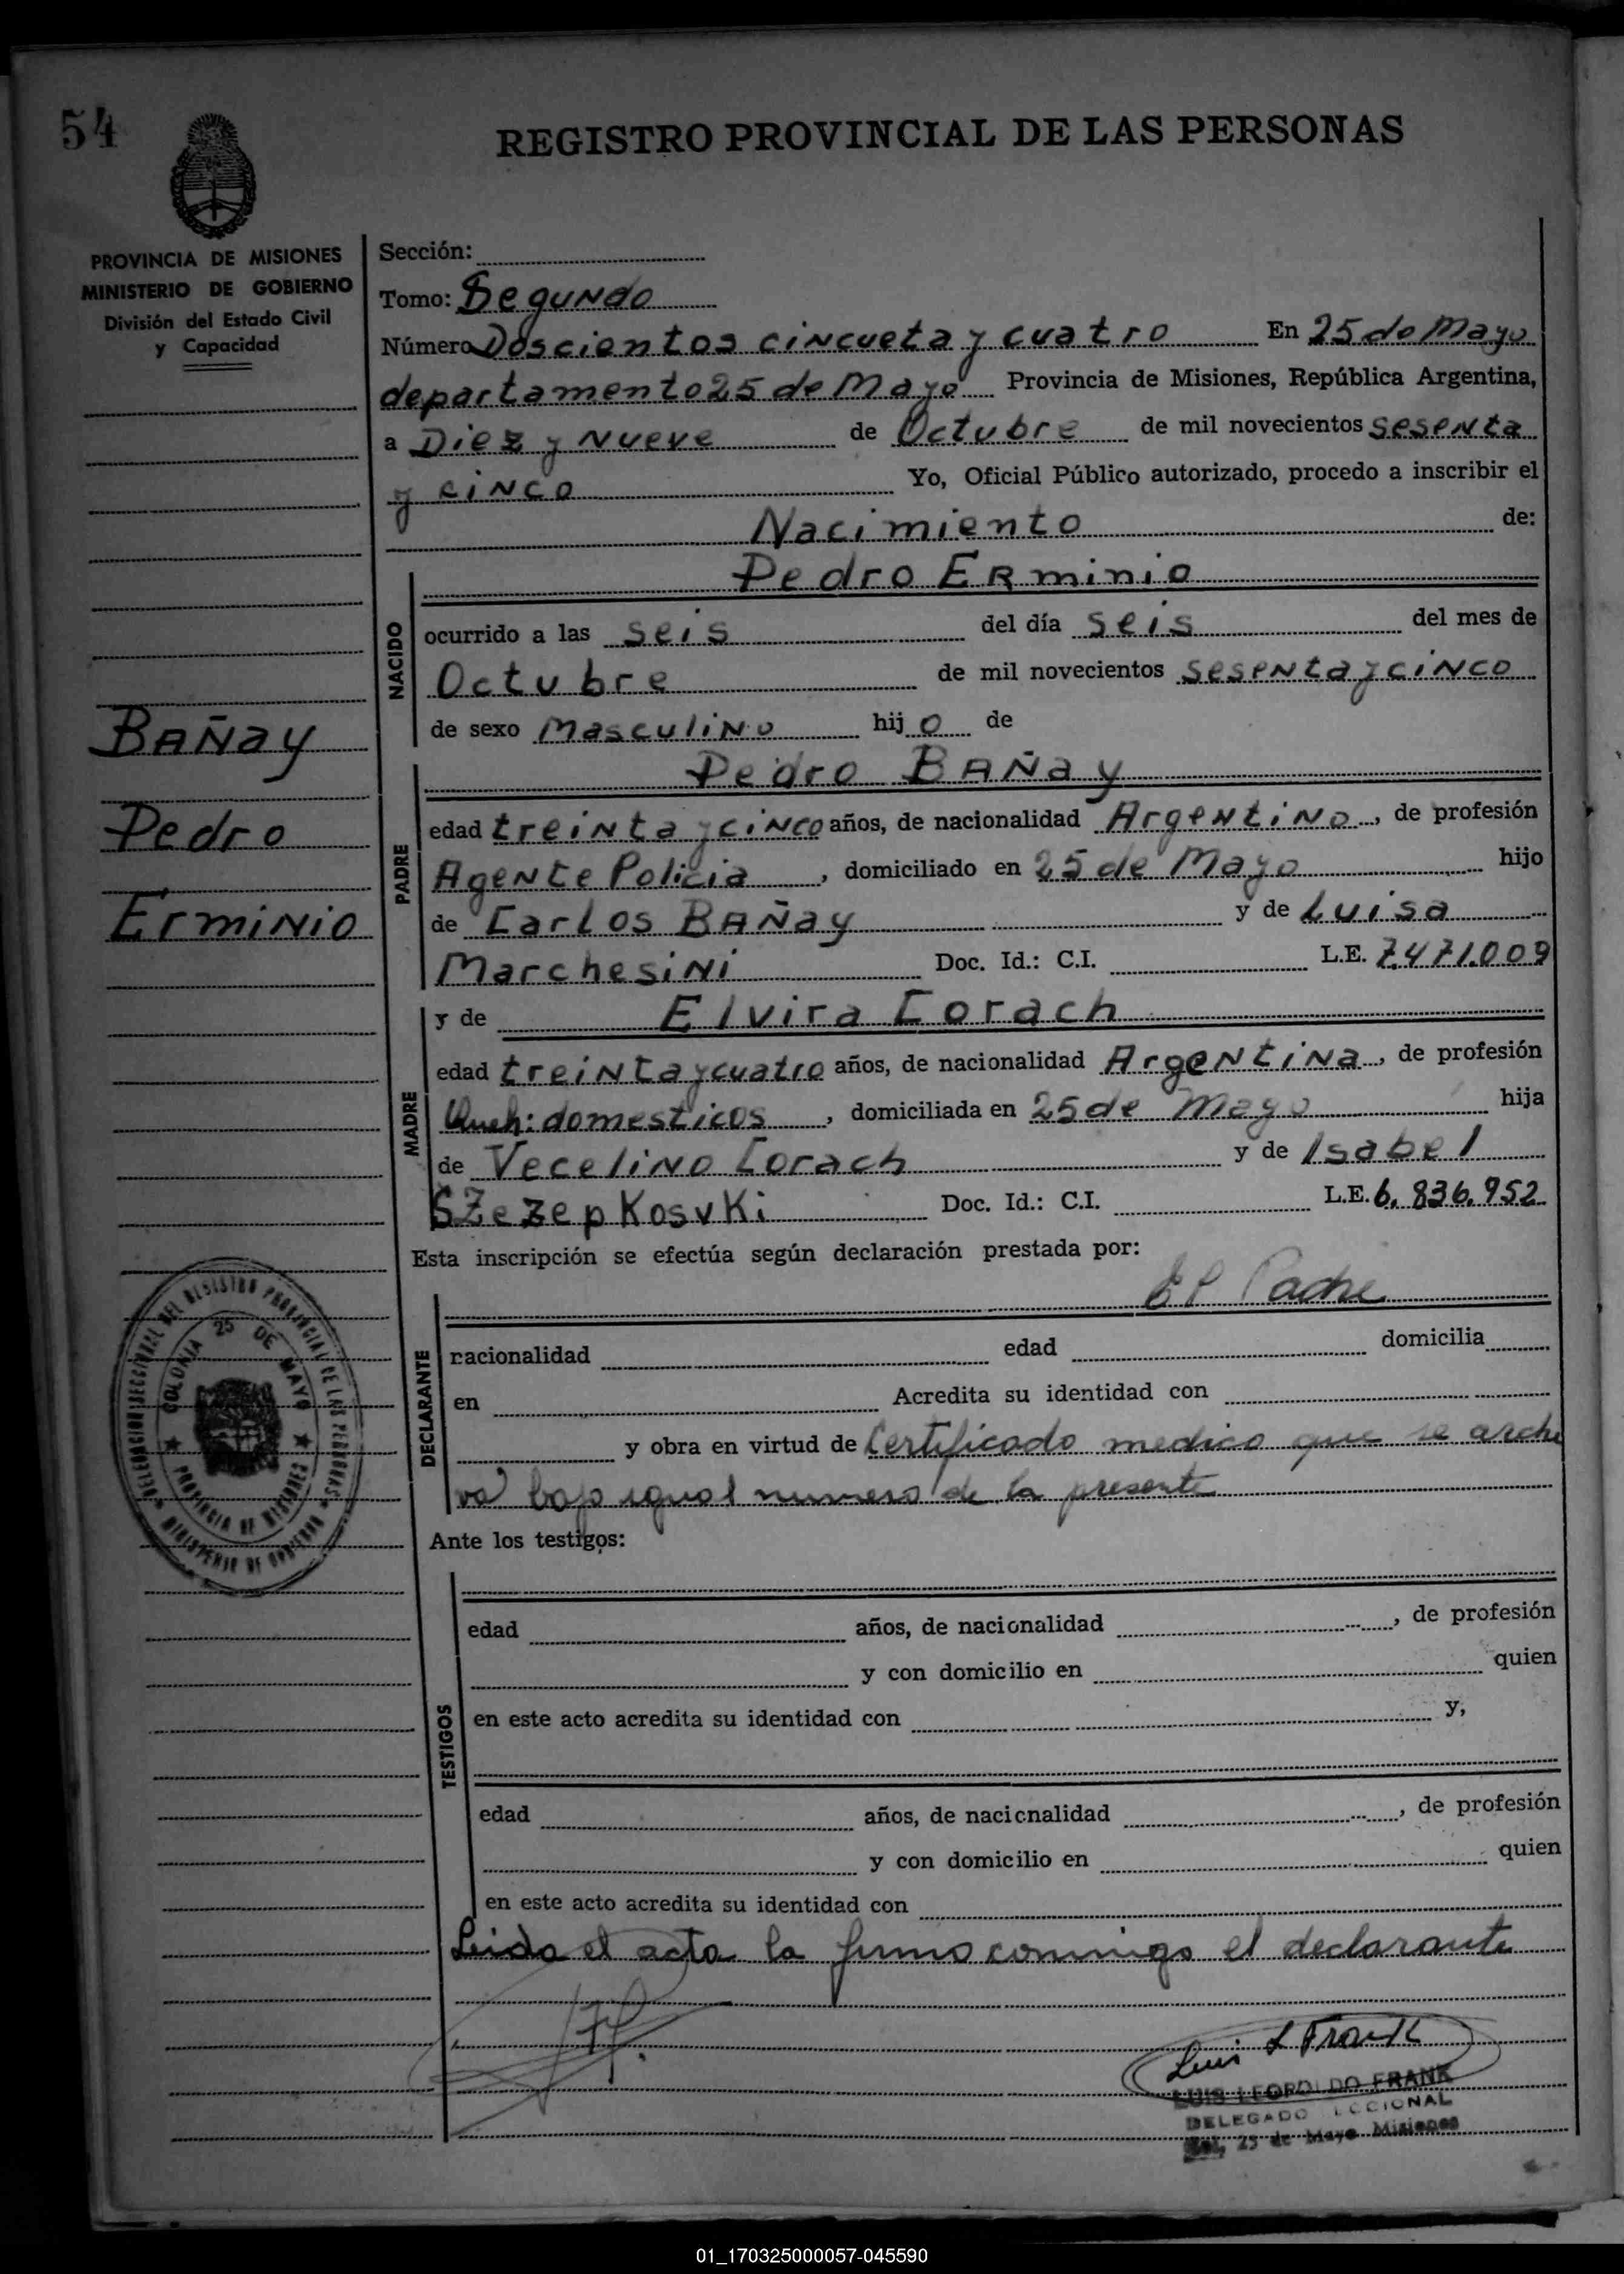 54
REGISTRO PROVINCIAL DE LAS PERSONAS
PROVINCIA DE MISIONES
MINISTERIO DE GOBIERNO
División del Estado Civil
y Capacidad
Sección:
Tomo: Segundo
Número Doscientos cincueta y cuatro En 25 de Mayo
departamento 25 de Mayo Provincia de Misiones, República Argentina,
a Diez y nueve de Octubre de mil novecientos sesenta
y cinco Yo, Oficial Público autorizado, procedo a inscribir el
Nacimiento de:
Pedro Erminio
NACIDO
ocurrido a las seis del día seis del mes de
Octubre de mil novecientos sesenta y cinco
de sexo Masculino hijo de
Bañay
Pedro
Erminio
Pedro Bañay
PADRE
edad treinta y cinco años, de nacionalidad Argentino, de profesión
Agente Policia, domiciliado en 25 de Mayo hijo
de Carlos Bañay y de Luisa
Marchesini Doc. Id.: C.I. L.E. 7.471.009
y de Elvira Corach
MADRE
edad treinta y cuatro años, de nacionalidad Argentina, de profesión
Queh: domesticos, domiciliada en 25 de Mayo hija
de Vecelino Corach y de Isabel
Szezepkosvki Doc. Id.: C.I. L.E. 6.836.952
Esta inscripción se efectúa según declaración prestada por:
El Padre
DECLARANTE
nacionalidad edad domicilia
en Acredita su identidad con
y obra en virtud de Certificado medico que se archi
va bajo igual numero de la presente
DELEGACION SECCIONAL DEL REGISTRO PROVINCIAL DE LAS PERSONAS
MINISTERIO DE GOBIERNO
COLONIA 25 DE MAYO
PROVINCIA DE MISIONES
Ante los testigos:
TESTIGOS
edad años, de nacionalidad , de profesión
y con domicilio en quien
en este acto acredita su identidad con y,
edad años, de nacionalidad , de profesión
y con domicilio en quien
en este acto acredita su identidad con
Leida el acta la firma conmigo el declarante
Luis L Frank
LUIS LEOPOLDO FRANK
DELEGADO SECCIONAL
Col. 25 de Mayo Misiones
01_170325000057-045590